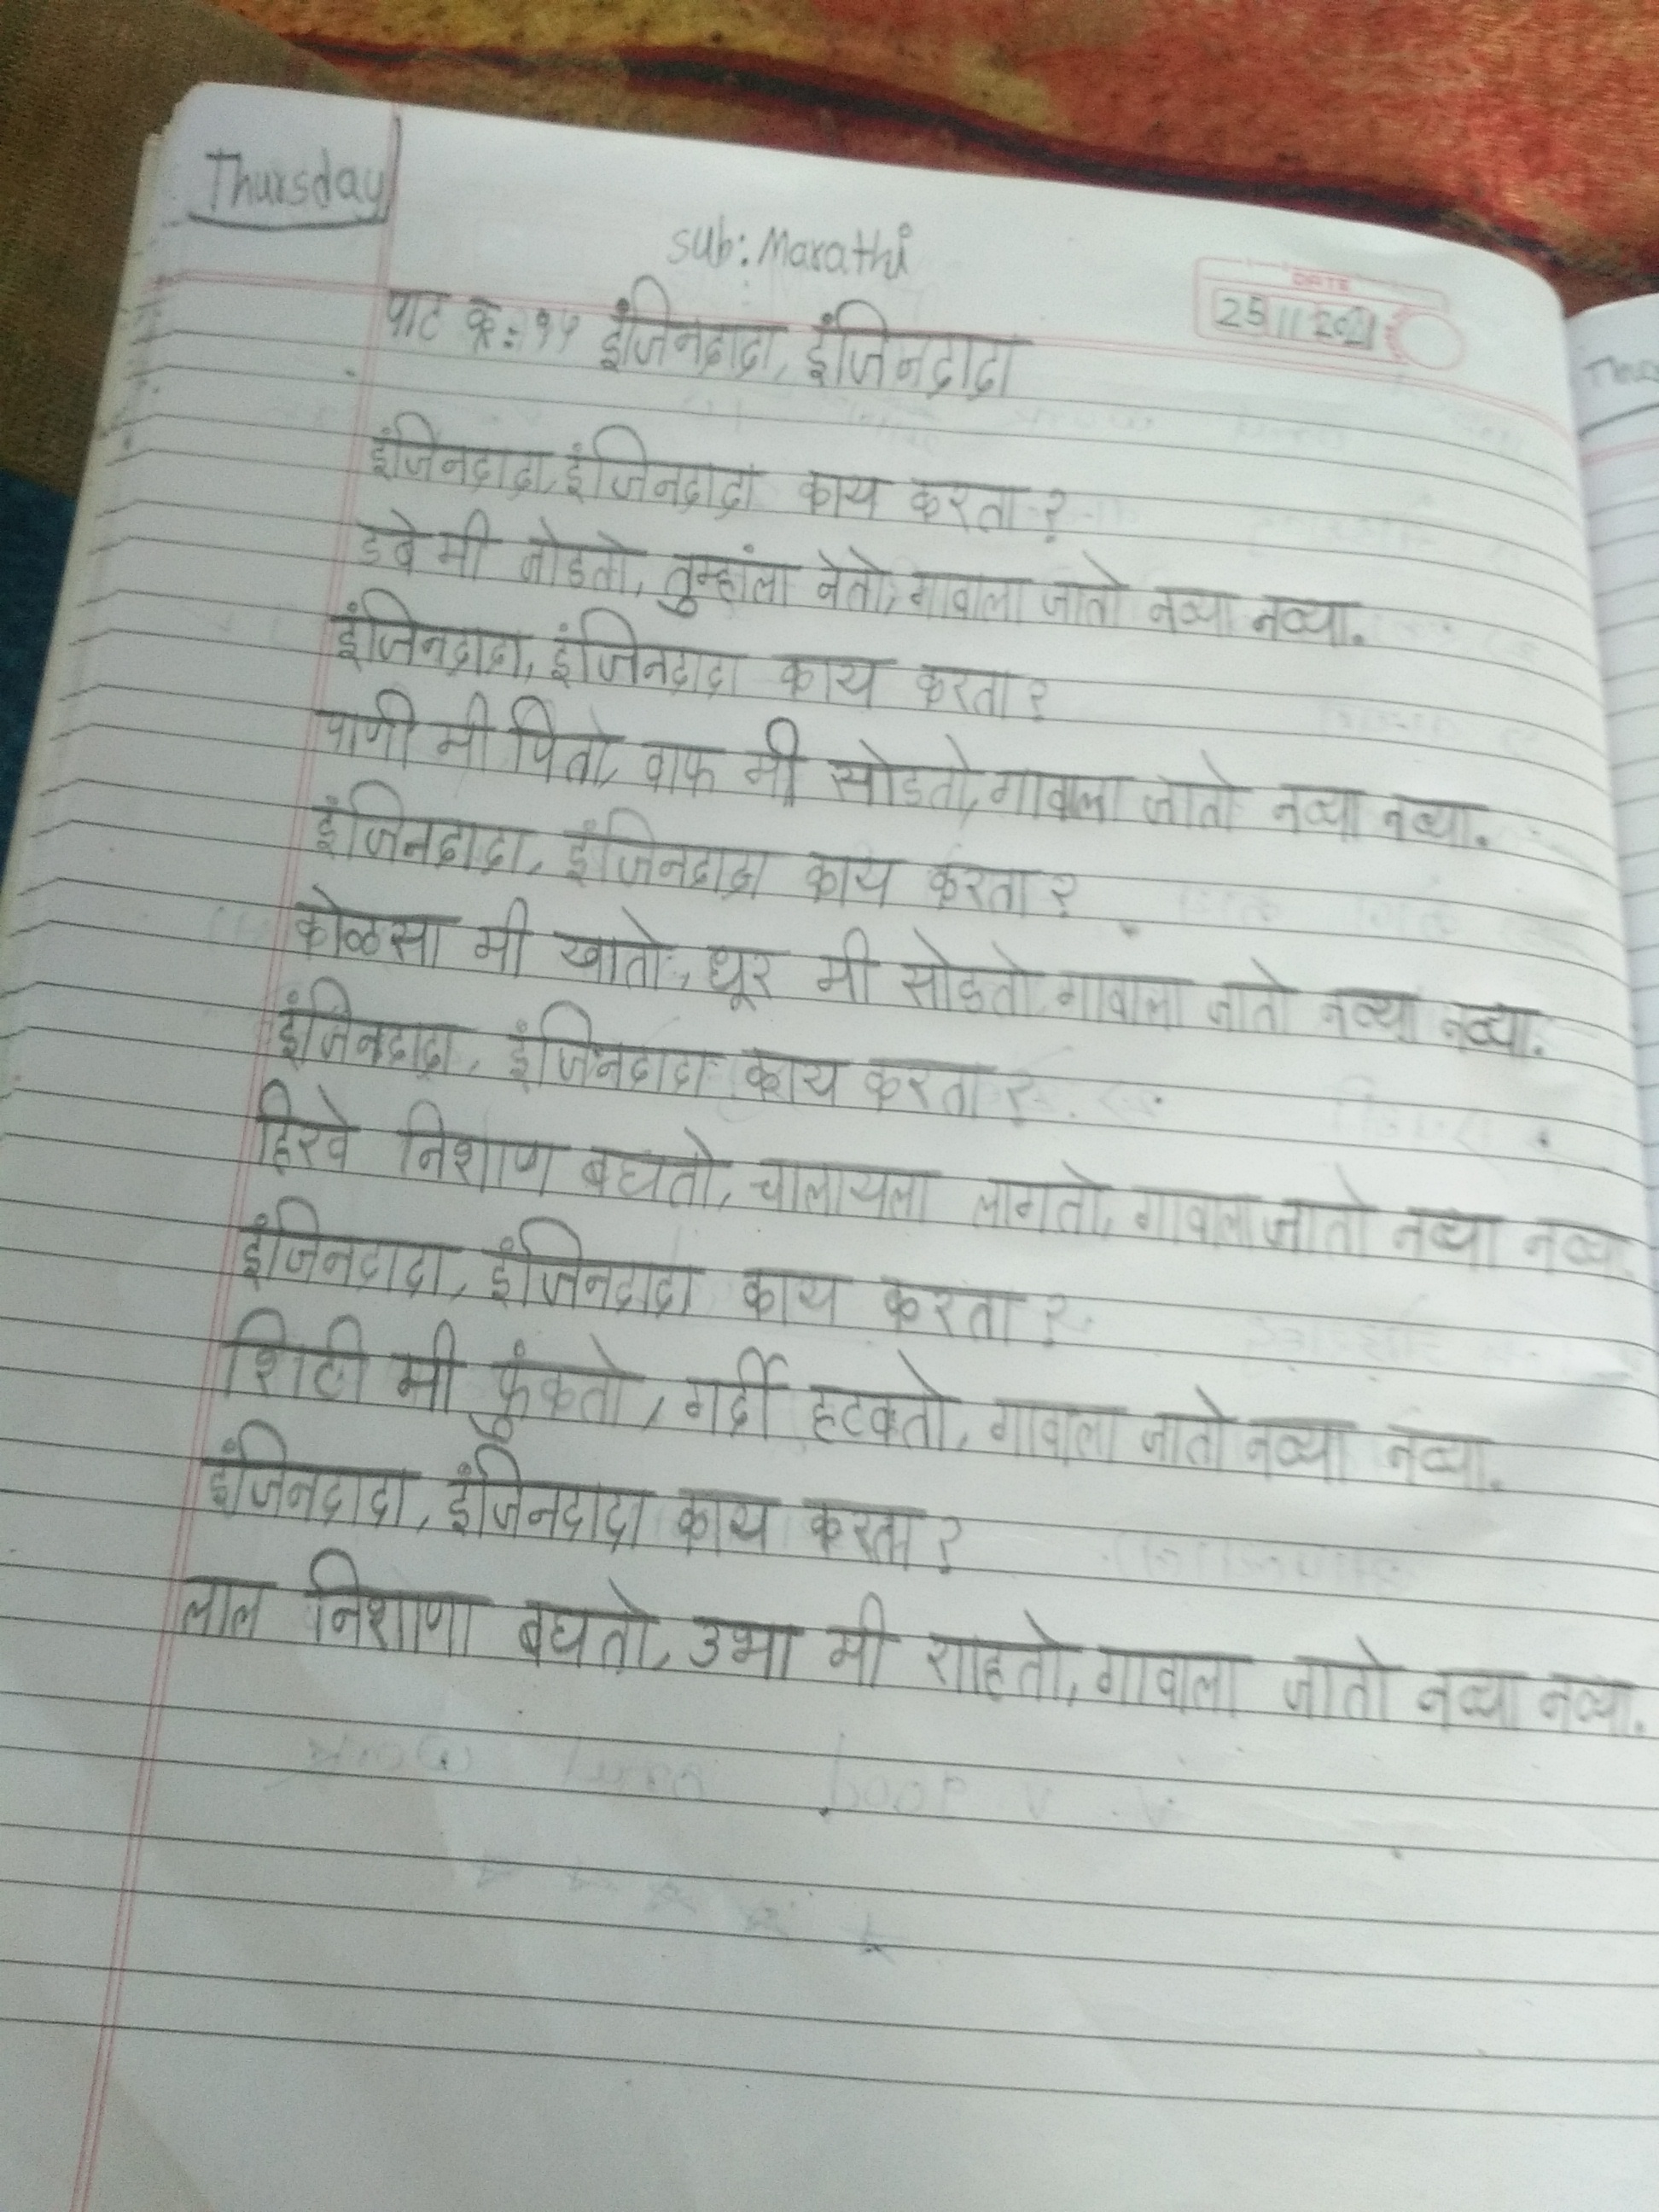 Thursday
sub: Marathi
DATE
25 11 2021
पाट क्र: १५ इंजिनदादा, इंजिनदादा
इंजिनदादा, इंजिनदादा काय करता?
डबे मी जोडतो, तुम्हांला नेतो, गावाला जातो नव्या नव्या.
इंजिनदादा, इंजिनदादा काय करता?
पाणी मी पितो, वाफ मी सोडतो, गावाला जातो नव्या नव्या.
इंजिनदादा, इंजिनदादा काय करता?
कोळसा मी खातो, धूर मी सोडतो, गावाला जातो नव्या नव्या.
इंजिनदादा, इंजिनदादा काय करता?
हिरवे निशाण बघतो, चालायला लागतो, गावाला जातो नव्या नव्या.
इंजिनदादा, इंजिनदादा काय करता?
शिटी मी फुंकतो, गर्दी हटवतो, गावाला जातो नव्या नव्या.
इंजिनदादा, इंजिनदादा काय करता?
लाल निशाणा बघतो, उभा मी राहतो, गावाला जातो नव्या नव्या.